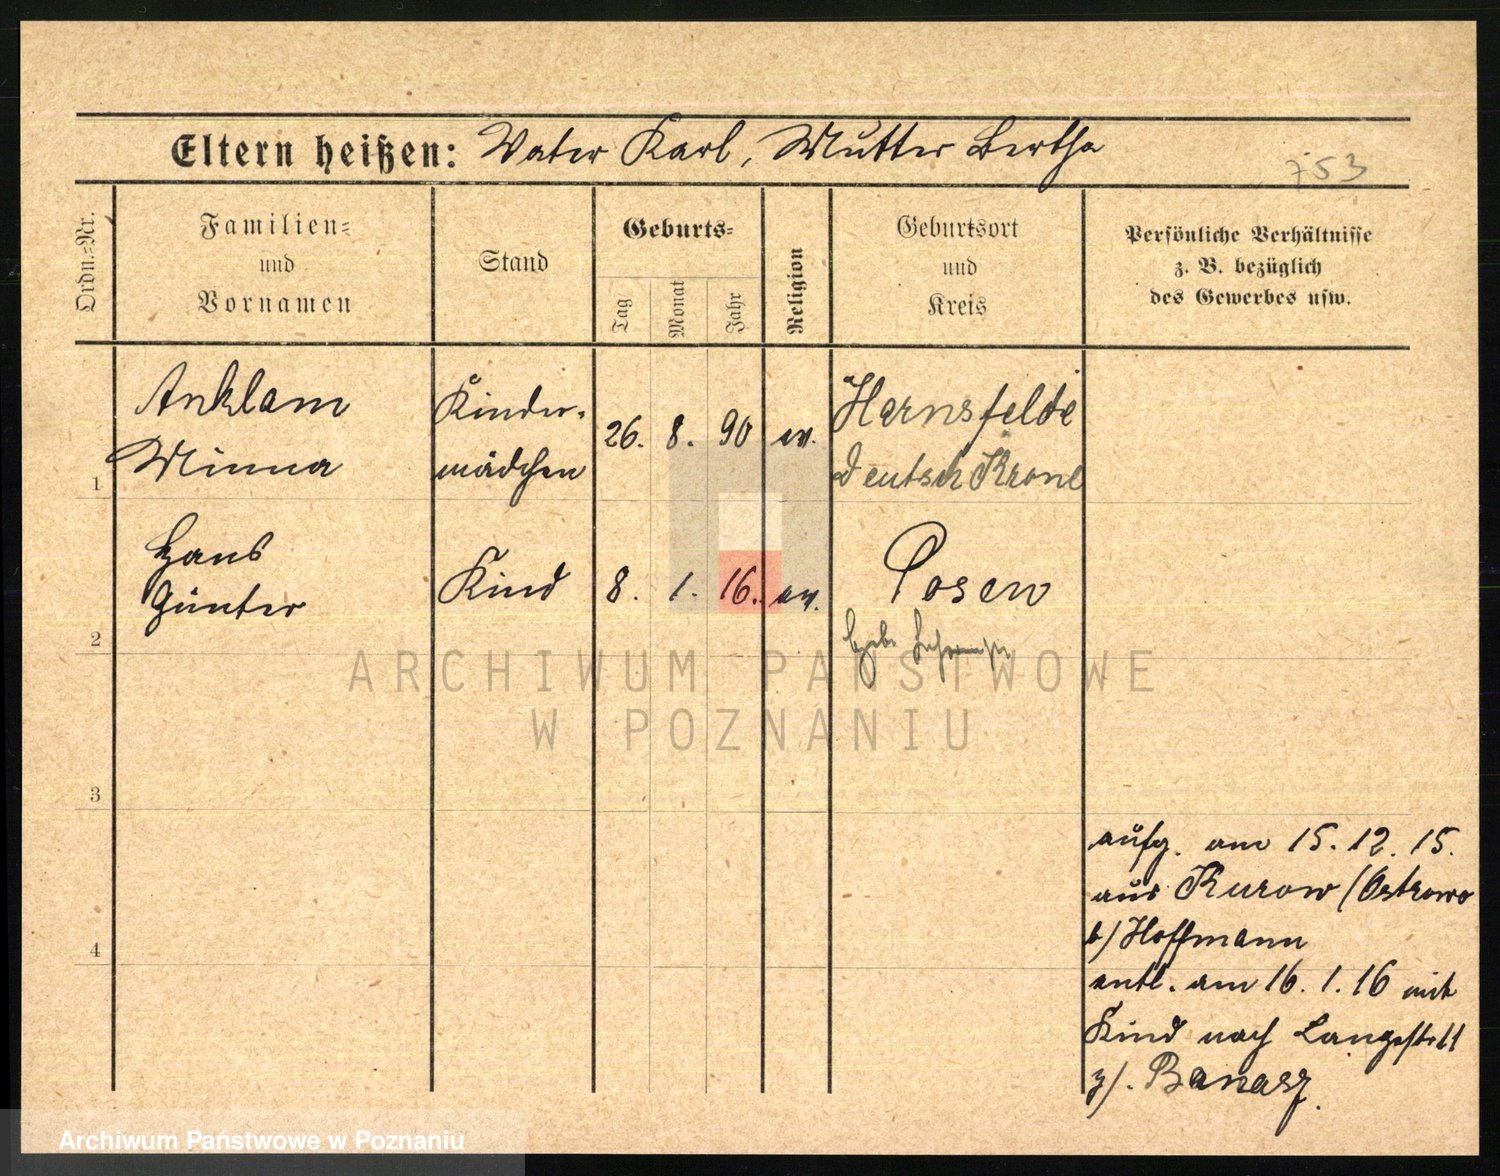 Eltern heißen: Vater Karl, Mutter Bertha
753
Ordn.-Nr.
Familien-
und
Vornamen
Stand
Geburts-
Tag
Monat
Jahr
Religion
Geburtsort
und
Kreis
Persönliche Verhältnisse
z. B. bezüglich
des Gewerbes usw.
1
Anklam
Minna
Kinder-
mädchen
26. 8. 90 ev.
Harnsfelde
Deutsch Krone
2
Hans
Günter
Kind
8. 1. 16. ev.
Posen
ARCHIWUM PAŃSTWOWE
W POZNANIU
3
4
aufg. am 15. 12. 15.
aus Kurow (Ostrowo
b/ Hoffmann
entl. am 16. 1. 16 mit
Kind nach
z/. Banasz.
Archiwum Państwowe w Poznaniu